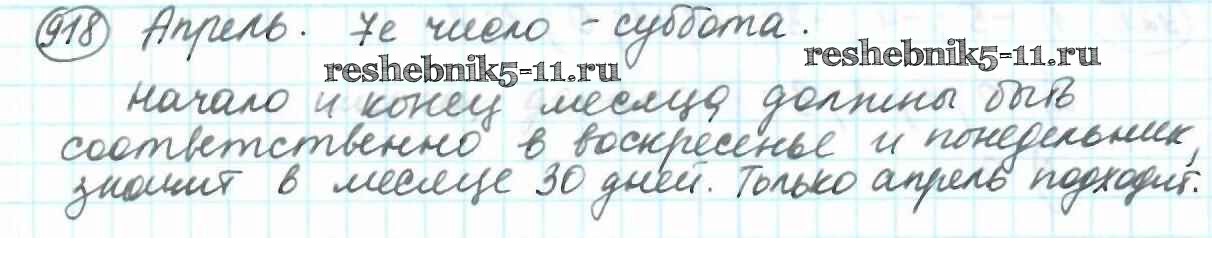 918 Апрель. 7е число - суббота.
reshebnik5-11.ru reshebnik5-11.ru
Начало и конец месяца должны быть
соответственно в воскресенье и понедельник,
значит в месяце 30 дней. Только апрель подходит.